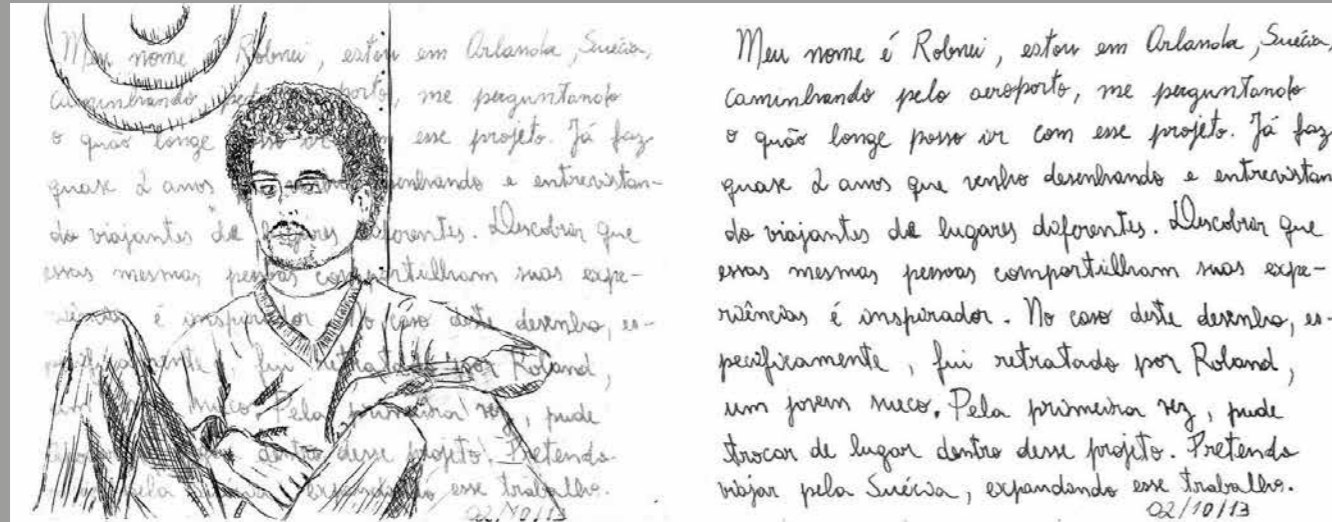 Meu nome Robnei, estou em Arlanda, Suécia,
caminhando me perguntando
o quão longe esse projeto. Já faz
quase 2 anos e entrevistan-
do viajantes de diferentes. Descobrir que
essas mesmas pessoas compartilham suas expe-
riências é inspirador. No caso deste desenho, es-
fui por Roland,
um sueco. Pela primeira vez, pude
dentro desse projeto. Pretendo
pela esse trabalho.
02/10/13
Meu nome é Robnei, estou em Arlanda, Suécia,
caminhando pelo aeroporto, me perguntando
o quão longe posso ir com esse projeto. Já faz
quase 2 anos que venho desenhando e entrevistan
do viajantes de lugares diferentes. Descobrir que
essas mesmas pessoas compartilham suas expe-
riências é inspirador. No caso deste desenho, es-
pecificamente, fui retratado por Roland,
um jovem sueco. Pela primeira vez, pude
trocar de lugar dentro desse projeto. Pretendo
viajar pela Suécia, expandindo esse trabalho.
02/10/13